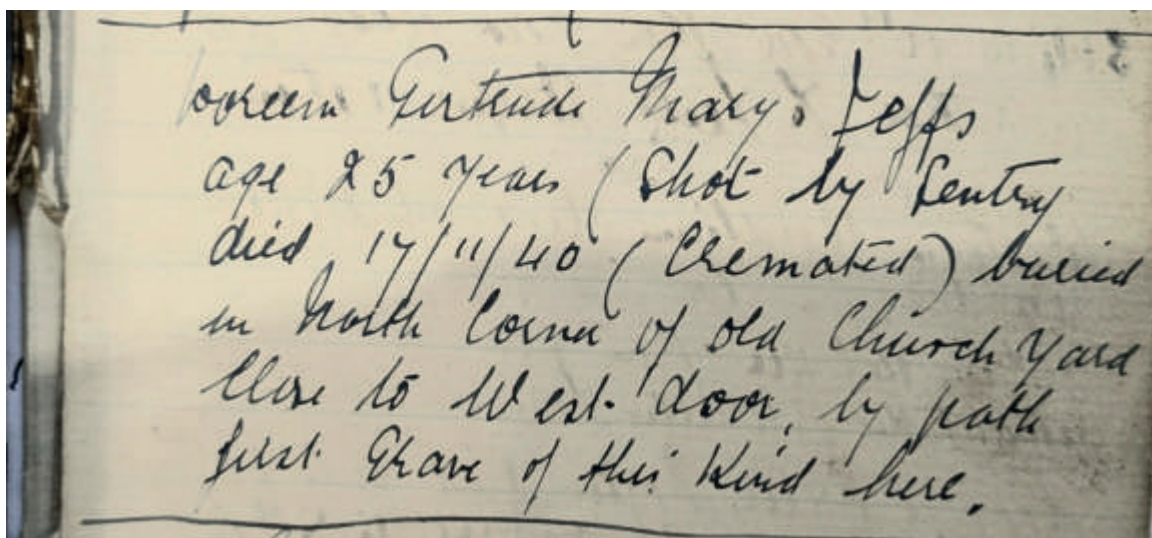 Gertrude Mary. Jeffs
age 25 years (Shot by Sentry
died 17/11/40 (Cremated) buried
in North Corner of old Church Yard
Close to West door, by path
first Grave of this Kind here.